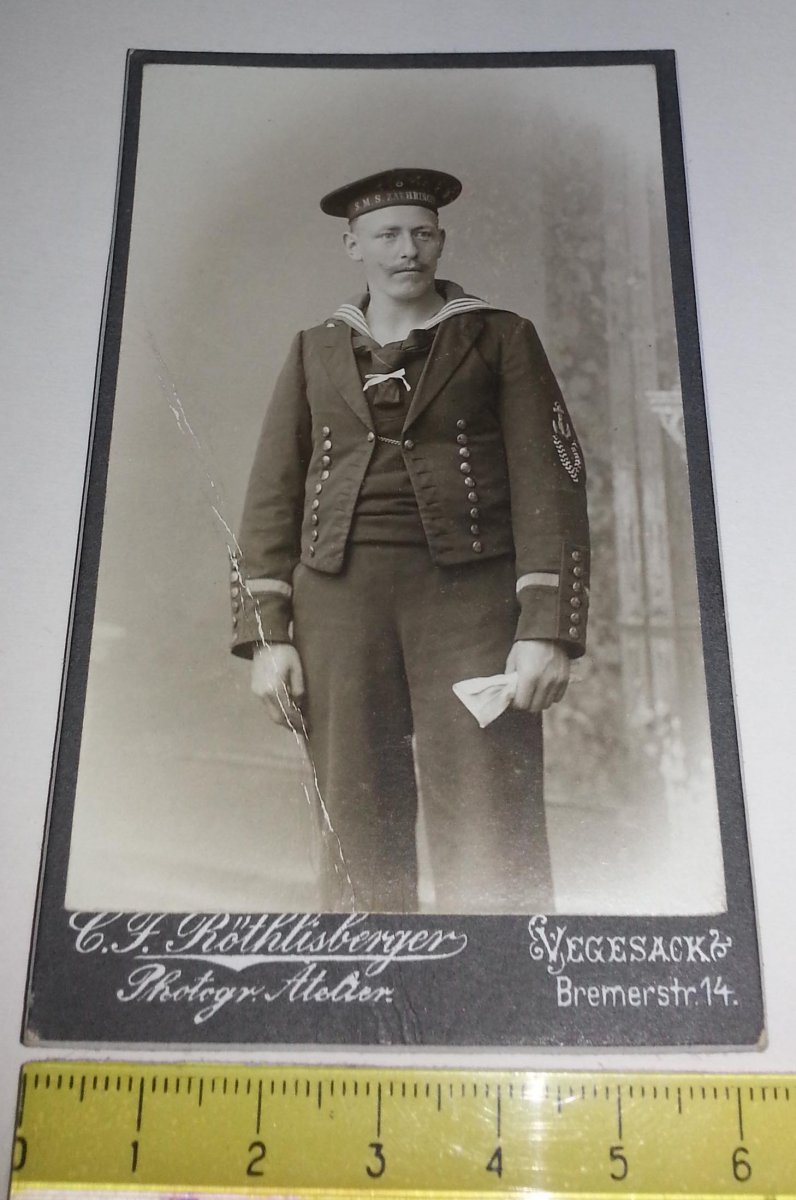 S.M.S. ZAEHRINGEN
C. F. Röthlisberger
Photogr. Atelier.
VEGESACK
Bremerstr. 14.
0 1 2 3 4 5 6